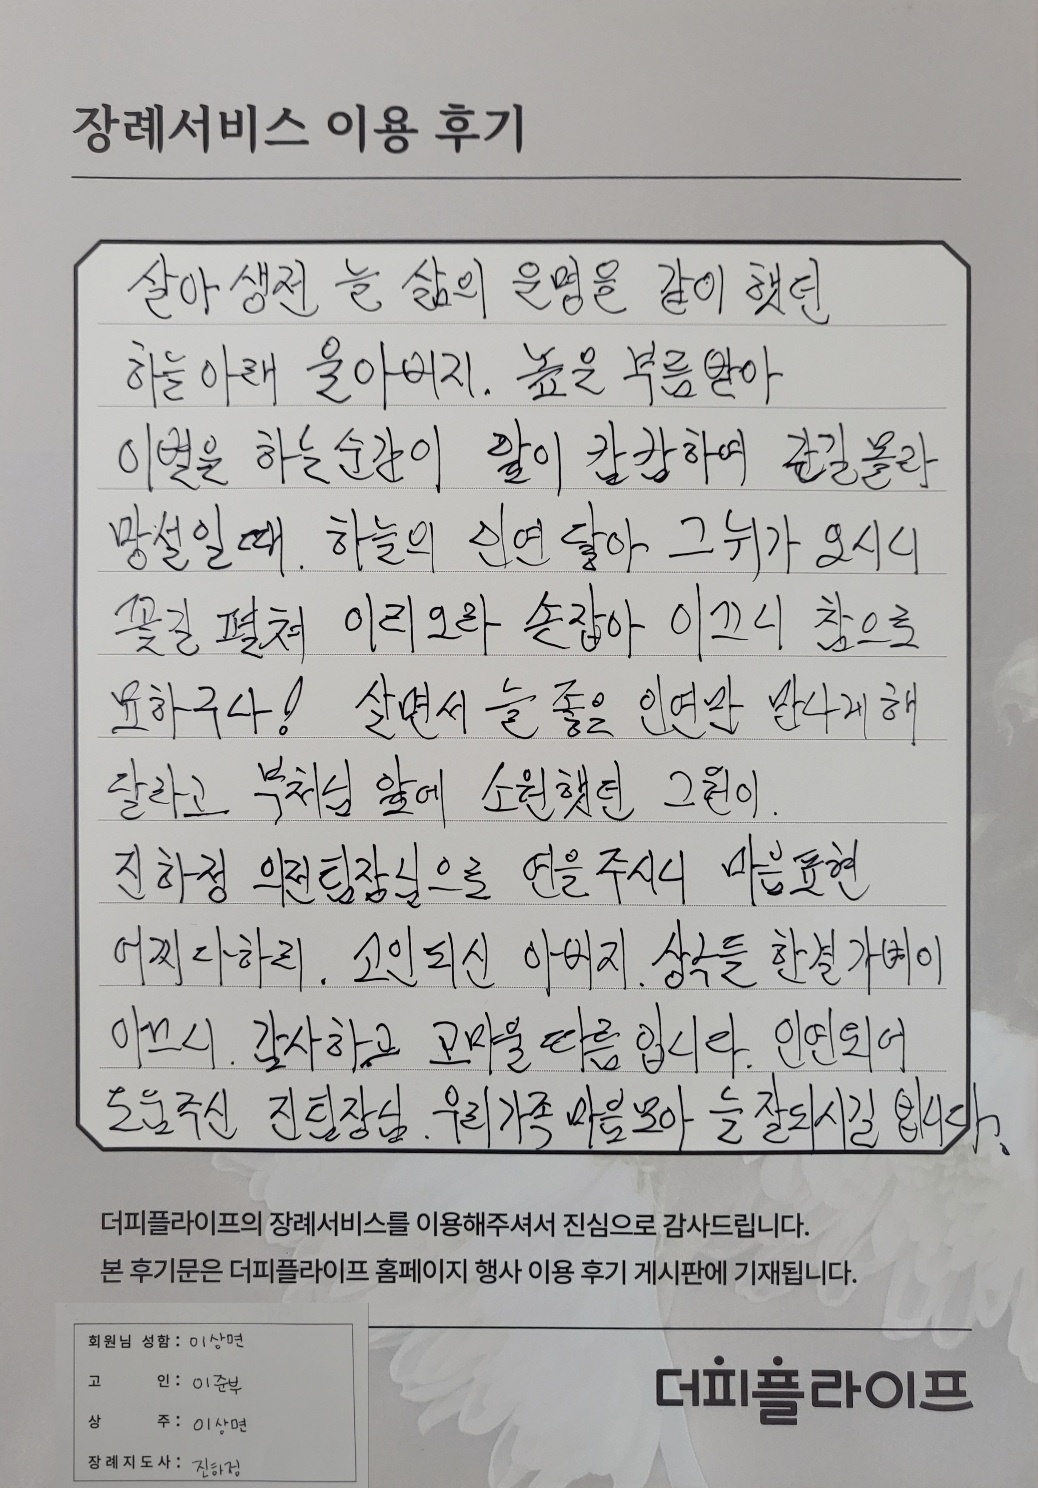 장례서비스 이용 후기
살아 생전 늘 삶의 운명을 같이 했던
하늘아래 울아버지. 높은 부름받아
이별을 하는 순간이 앞이 캄캄하여 갈길 몰라
망설일때. 하늘의 인연 닿아 그 뉘가 오시니
꽃길 펼쳐 이리오라 손잡아 이끄니 참으로
묘하구나! 살면서 늘 좋은 인연만 만나게 해
달라고 부처님 앞에 소원했던 그원이.
진하정 의전팀장님으로 연을 주시니 마음표현
어찌 다하리. 고인되신 아버지. 상국들 한결가벼이
이끄시. 감사하고 고마울 따름입니다. 인연되어
도움주신 진팀장님. 우리가족 마음모아 늘 잘되시길 빕니다.
더피플라이프의 장례서비스를 이용해주셔서 진심으로 감사드립니다.
본 후기문은 더피플라이프 홈페이지 행사 이용 후기 게시판에 기재됩니다.
회원님 성함 : 이상면
고 인 : 이준부
상 주 : 이상면
장례지도사 : 진하정
더피플라이프